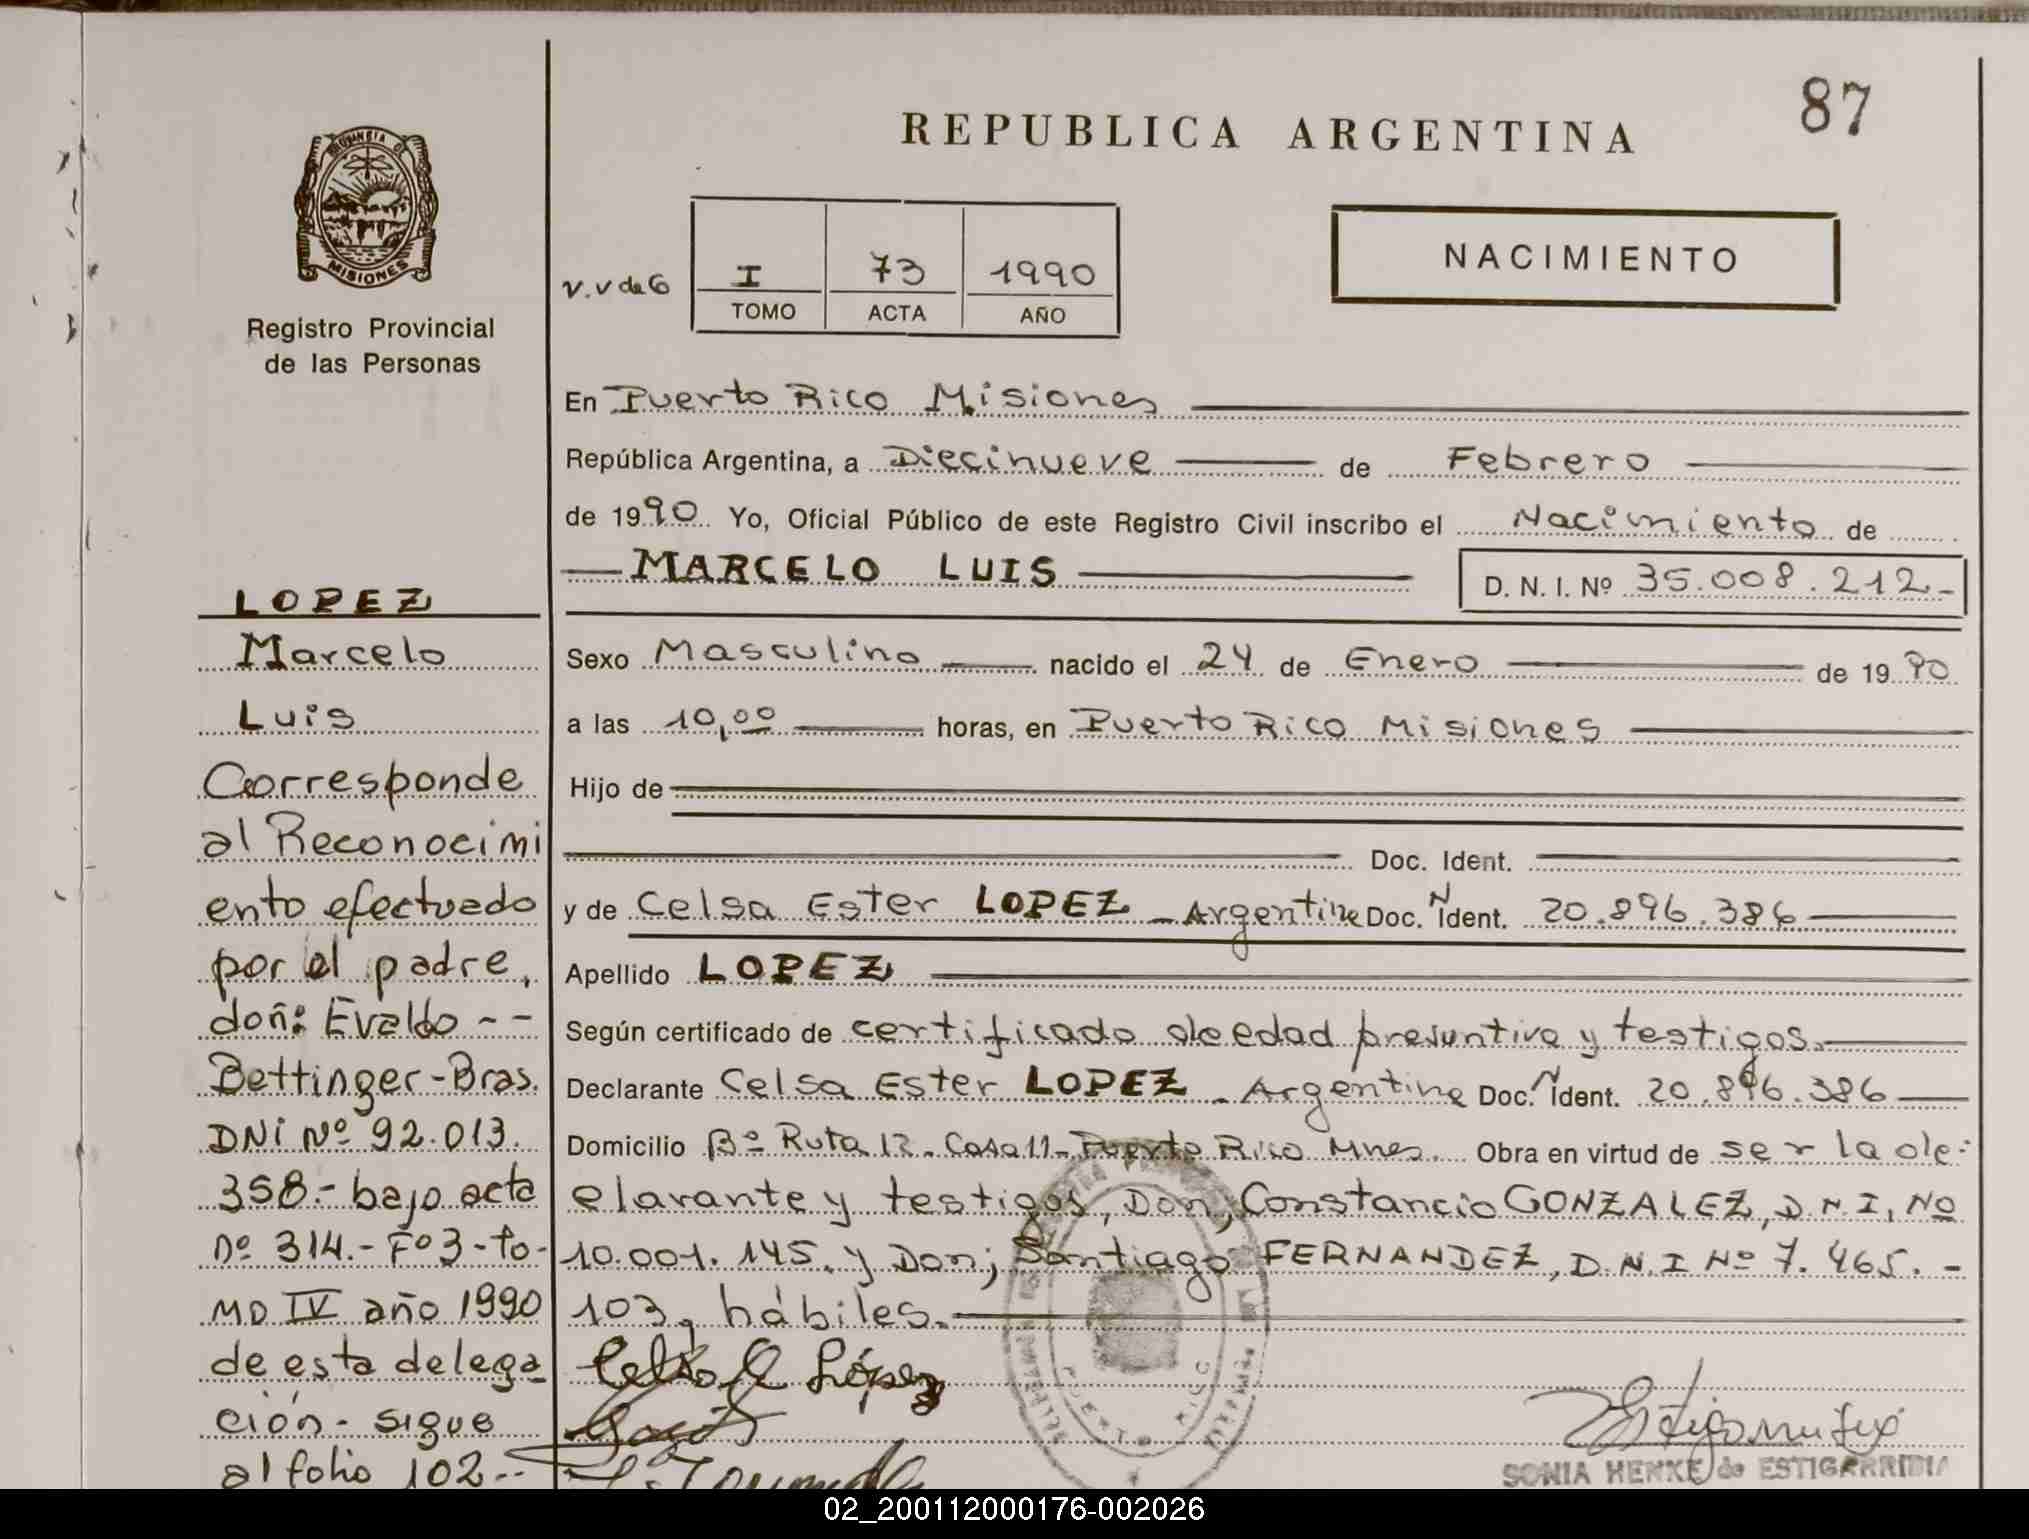 87
REPUBLICA ARGENTINA
PROVINCIA DE
MISIONES
Registro Provincial
de las Personas
I 73 1990
TOMO ACTA AÑO
NACIMIENTO
En Puerto Rico Misiones
República Argentina, a Diecinueve de Febrero
de 1990 Yo, Oficial Público de este Registro Civil inscribo el Nacimiento de
MARCELO LUIS
D. N. I. Nº 35.008.212-
Sexo Masculino nacido el 24 de Enero de 1990
a las 10,00 horas, en Puerto Rico Misiones
Hijo de
Doc. Ident.
y de Celsa Ester LOPEZ - Argentina Doc. N Ident. 20.896.386
Apellido LOPEZ
Según certificado de certificado de edad presuntiva y testigos.
Declarante Celsa Ester LOPEZ - Argentina Doc. N Ident. 20.896.386
Domicilio Bº Ruta 12 - Casa 11 - Puerto Rico Mnes. Obra en virtud de ser la de-
clarante y testigos, Don; Constancio GONZALEZ, D.N.I. Nº
10.001.145. y Don; Santiago FERNANDEZ, D.N.I Nº 7.465.-
103, hábiles.
López
SONIA HENKE de ESTIGARRIBIA
LOPEZ
Marcelo
Luis
Corresponde
al Reconocimi
ento efectuado
por el padre,
don: Evaldo --
Bettinger-Bras.
DNI Nº 92.013.
358.- bajo acta
nº 314.- Fº3-to-
mo IV año 1990
de esta delega-
ción- sigue
al folio 102--
PUERTO RICO
02_200112000176-002026